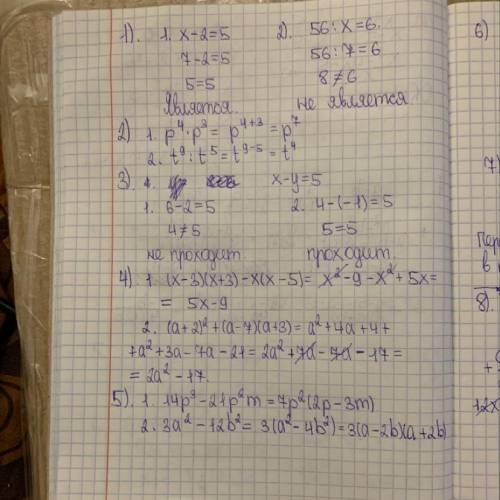 1). 1. x-2=5 2). 56:x=6.
7-2=5 56:7=6
5=5 8≠6
Является. не является
2) 1. p⁴·p³= p⁴⁺³ =p⁷
2. t⁹:t⁵=t⁹⁻⁵=t⁴
3) x-y=5
1. 6-2=5 2. 4-(-1)=5
4≠5 5=5
не проходит проходит
4) 1. (x-3)(x+3)-x(x-5)= x²-9-x²+5x=
= 5x-9
2. (a+2)²+(a-7)(a+3)=a²+4a+4+
+a²+3a-7a-21=2a²+7a-7a-17=
=2a²-17.
5) 1. 14p³-21p²m=7p²(2p-3m)
2. 3a²-12b²= 3(a²-4b²)=3(a-2b)(a+2b)
6)
7)
Пер
в
8).
12x